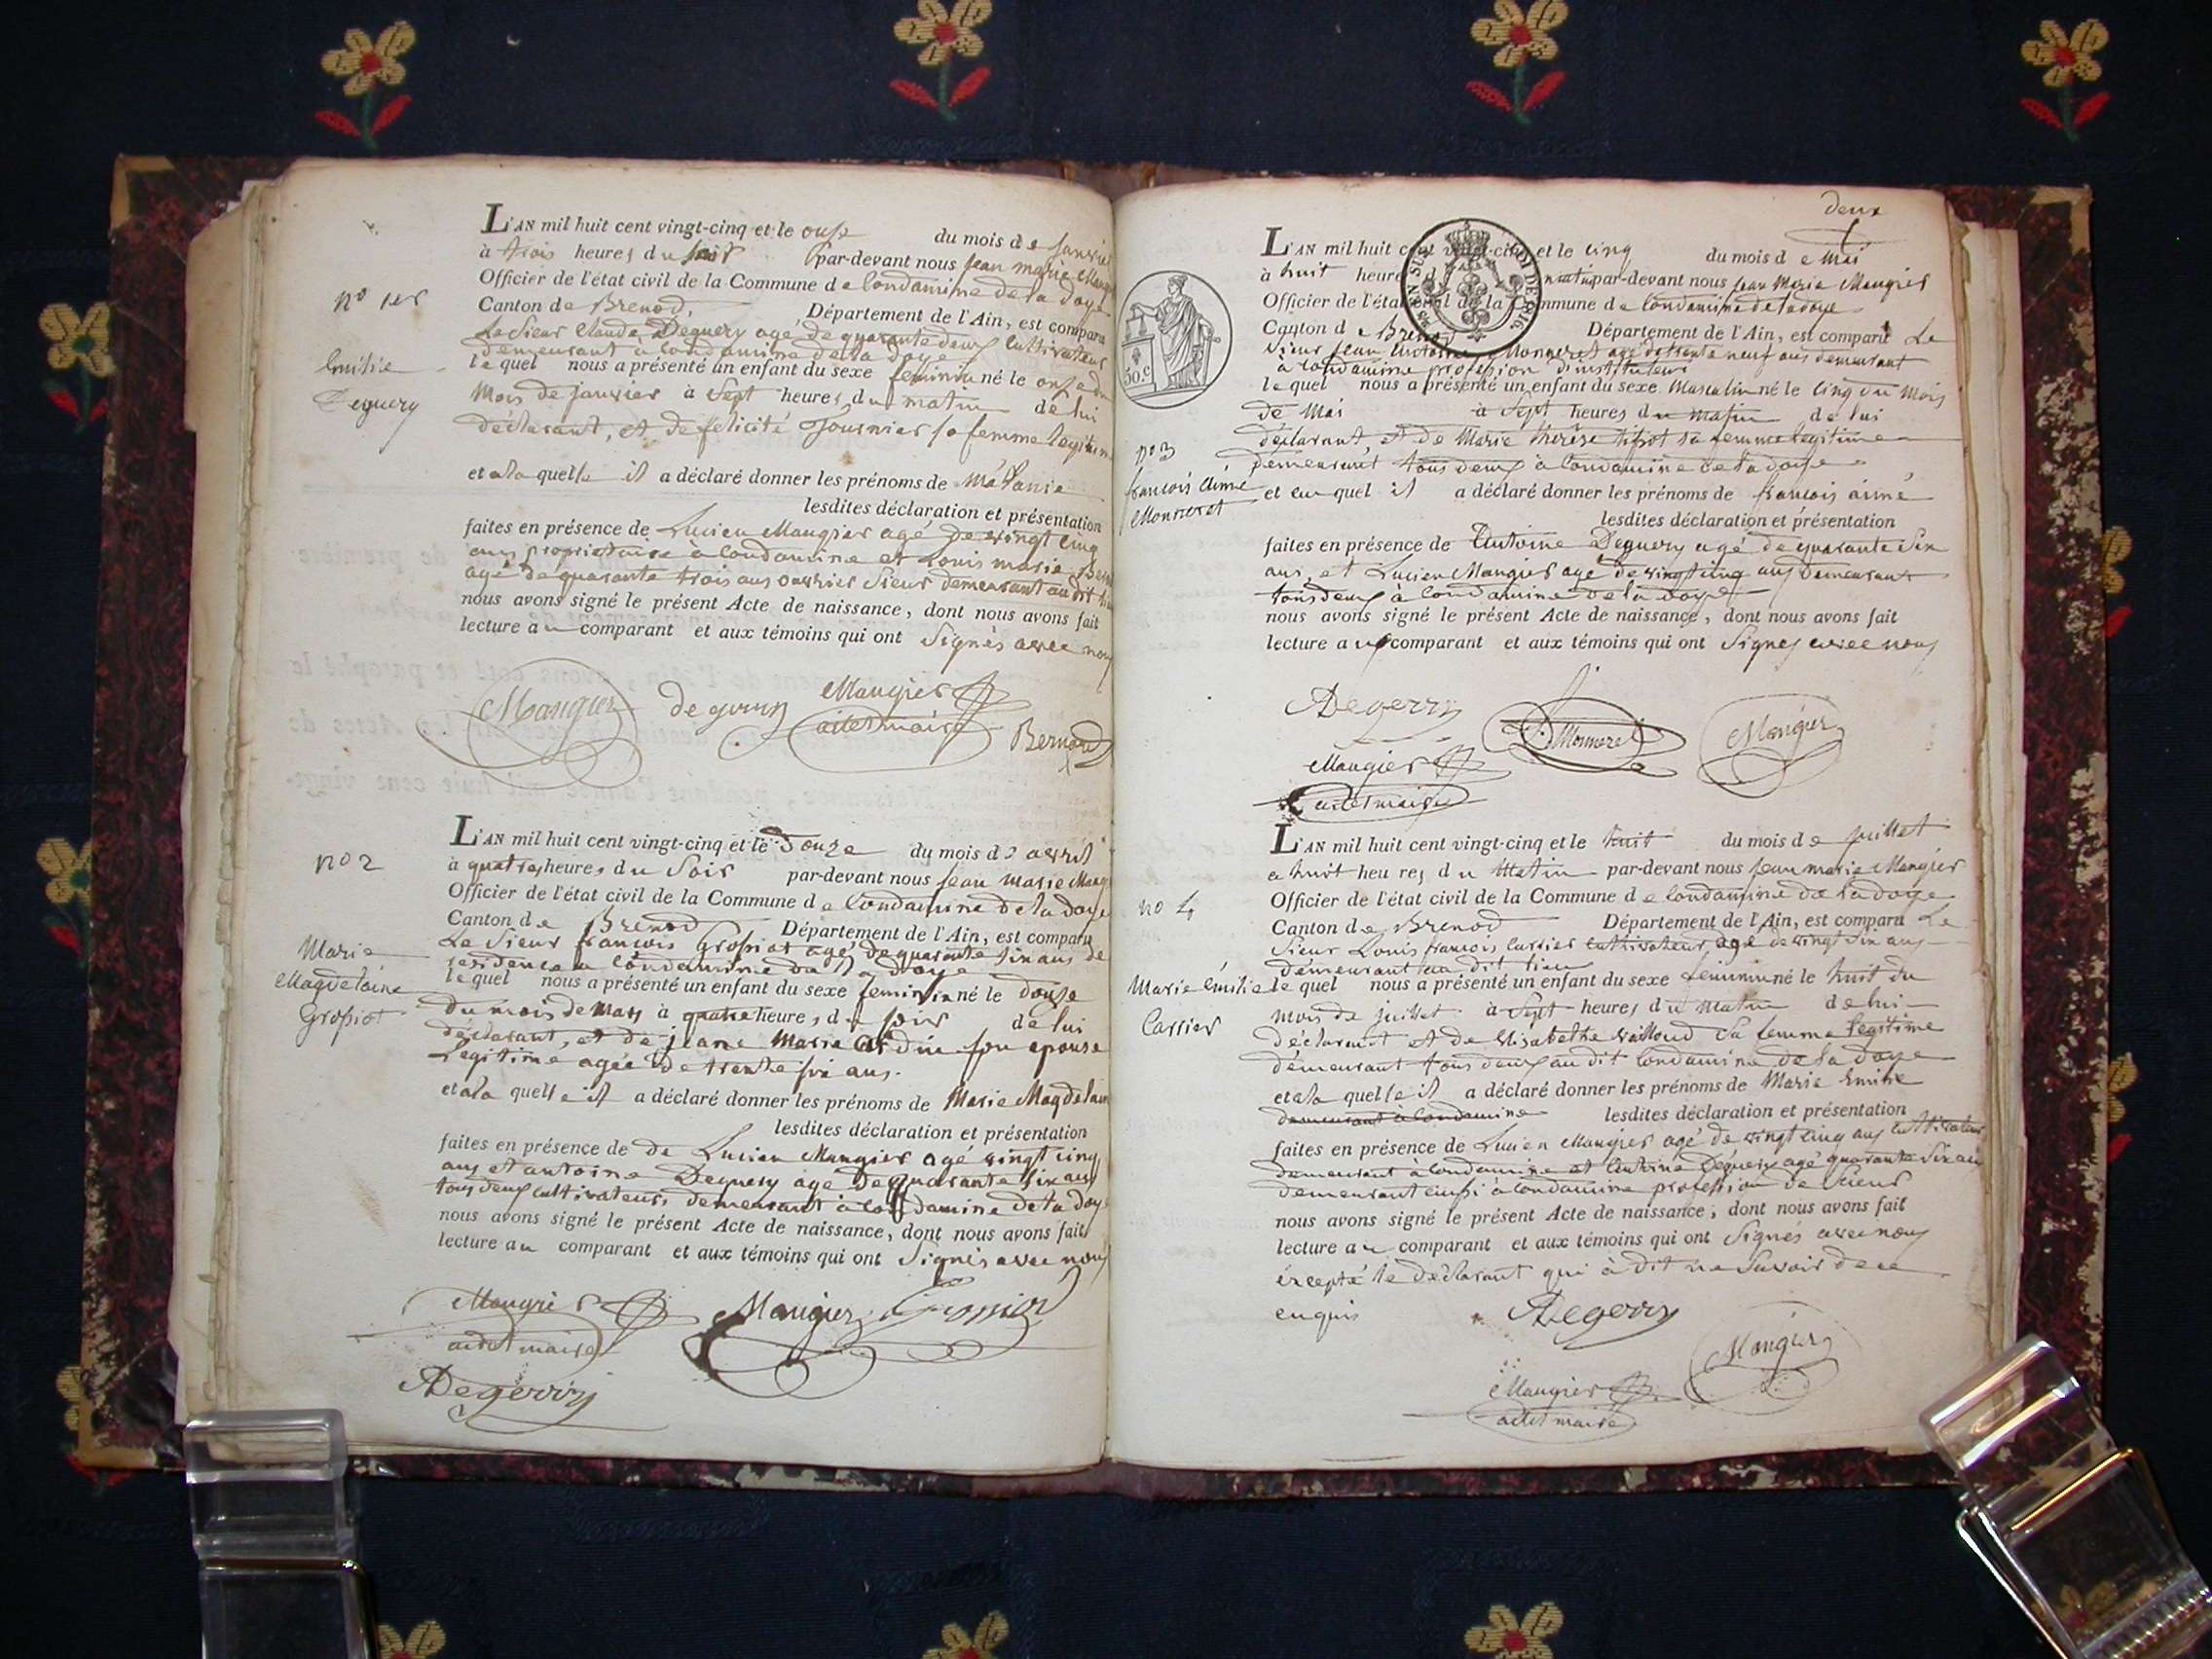 no 1er
Emilie
Deguery
L'AN mil huit cent vingt-cinq et le onze du mois de janvier
à trois heures du soir par-devant nous jean marie Maugier
Officier de l'état civil de la Commune de Condamine de la doye
Canton de Brenod, Département de l'Ain, est comparu
Le Sieur Claude Deguery agé de quarante deux cultivateur
demeurant à Condamine de la doye
lequel nous a présenté un enfant du sexe feminin né le onze du
mois de janvier à Sept heures du matin de lui
déclarant, et de felicité Journier sa femme legitime
et a la quelle il a déclaré donner les prénoms de
lesdites déclaration et présentation
faites en présence de Lucien Maugier agé de vingt cinq
ans propriétaire a Condamine et Louis marie
agé de quarante trois ans ouvrier Sieur demeurant au dit
nous avons signé le présent Acte de naissance, dont nous avons fait
lecture au comparant et aux témoins qui ont Signés avec nous
Maugier deguery Maugier
adet maire
Bernard
no 2
Marie
Magdelaine
Grossiot
L'AN mil huit cent vingt-cinq et le douze du mois de avril
à quatre heures du Soir par-devant nous jean marie Maug
Officier de l'état civil de la Commune de Condamine de la doye
Canton de Brenod Département de l'Ain, est comparu
Le Sieur francois Grossiot agé de quarante six ans de
residence a Condamine de la doye
lequel nous a présenté un enfant du sexe feminin né le douze
du mois de mars à quatre heures du soir de lui
déclarant, et de jeane Marie son epouse
Legitime agée de trente six ans.
et a la quelle il a déclaré donner les prénoms de Marie Magdelaine
lesdites déclaration et présentation
faites en présence de de Lucien Maugier agé vingt cinq
ans et antoine Deguery agé de quarante six ans
tous deux cultivateurs demeurant à Condamine de la doye
nous avons signé le présent Acte de naissance, dont nous avons fait
lecture au comparant et aux témoins qui ont Signés avec nous
Maugier Maugier
adet maire
Degerry
deux
50.c
no 3
francois Aimé
Monneret
L'AN mil huit cent vingt-cinq et le cinq du mois de Mai
à huit heures du matin par-devant nous Jean Marie Maugier
Officier de l'état civil de la Commune de Condamine de la doye
Canton de Brenod Département de l'Ain, est comparu Le
Sieur Jean Antoine Monneret agé de trente neuf ans demeurant
à Condamine profession d'instituteur
lequel nous a présenté un enfant du sexe Masculin né le Cinq du Mois
de Mai à Sept heures du matin de lui
déclarant et de Marie therèse sa femme legitime
demeurant tous deux à Condamine de la doye
et au quel il a déclaré donner les prénoms de francois aimé
lesdites déclaration et présentation
faites en présence de Antoine Deguery agé de quarante Six
ans, et Lucien Maugier agé de vingt cinq ans demeurant
tous deux à Condamine de la doye
nous avons signé le présent Acte de naissance, dont nous avons fait
lecture au comparant et aux témoins qui ont Signés avec nous
Degerry Monneret Maugier
Maugier
adet maire
no 4
Marie émilie
Carrier
L'AN mil huit cent vingt-cinq et le huit du mois de juillet
a huit heures du Matin par-devant nous jean marie Maugier
Officier de l'état civil de la Commune de Condamine de la doye
Canton de Brenod Département de l'Ain, est comparu Le
Sieur Louis francois Carrier cultivateur agé de vingt six ans
demeurant au dit lieu
lequel nous a présenté un enfant du sexe feminin né le huit du
mois de juillet à Sept heures du Matin de lui
déclarant et de Elisabethe Sa femme legitime
demeurant tous deux au dit Condamine de la doye
et a la quelle il a déclaré donner les prénoms de Marie
demeurant à Condamine lesdites déclaration et présentation
faites en présence de Lucien Maugier agé de vingt cinq ans cultivateur
demeurant à Condamine et Antoine Déguery agé quarante Six ans
demeurant aussi à Condamine profession de Sieur
nous avons signé le présent Acte de naissance, dont nous avons fait
lecture au comparant et aux témoins qui ont Signés avec nous
éxcepté le déclarant qui à dit ne Savoir de ce
enquis Degerry
Maugier
Maugier
adet maire